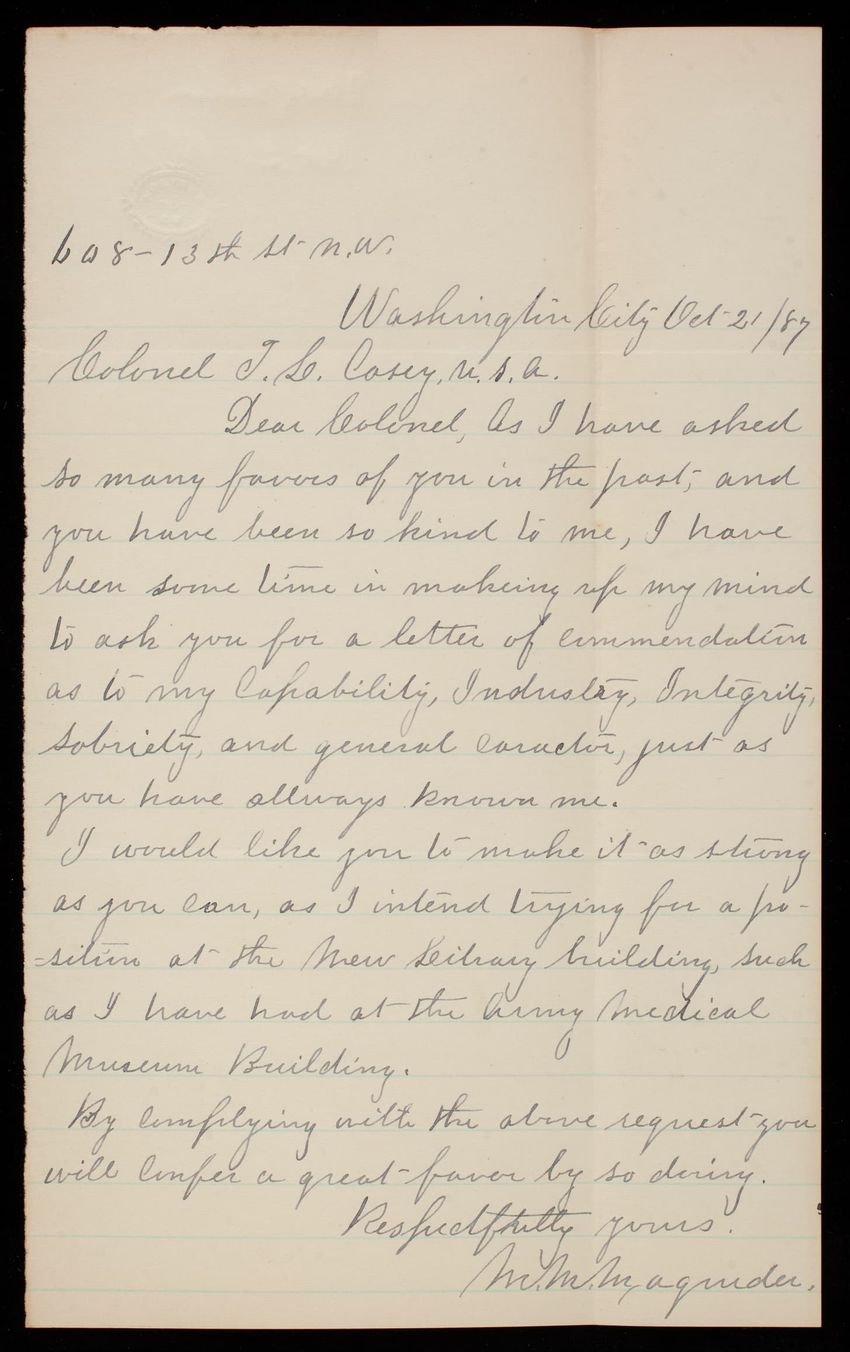 608-13th st n.w.
Washington City Oct 21/87
Colonel T. L. Casey, U.S.A.
Dear Colonel, As I have asked
so many favors of you in the past, and
you have been so kind to me, I have
been some time in makeing up my mind
to ask you for a letter of commendation
as to my Capability, Industry, Integrity,
Sobriety, and general caractor, just as
you have allways known me.
I would like you to make it as strong
as you can, as I intend trying for a po-
=sition at the New Library building, such
as I have had at the Army Medical
Museum Building.
By complying with the above request you
will confer a great favor by so doing.
Respectfully yours.
M. M. Magruder.